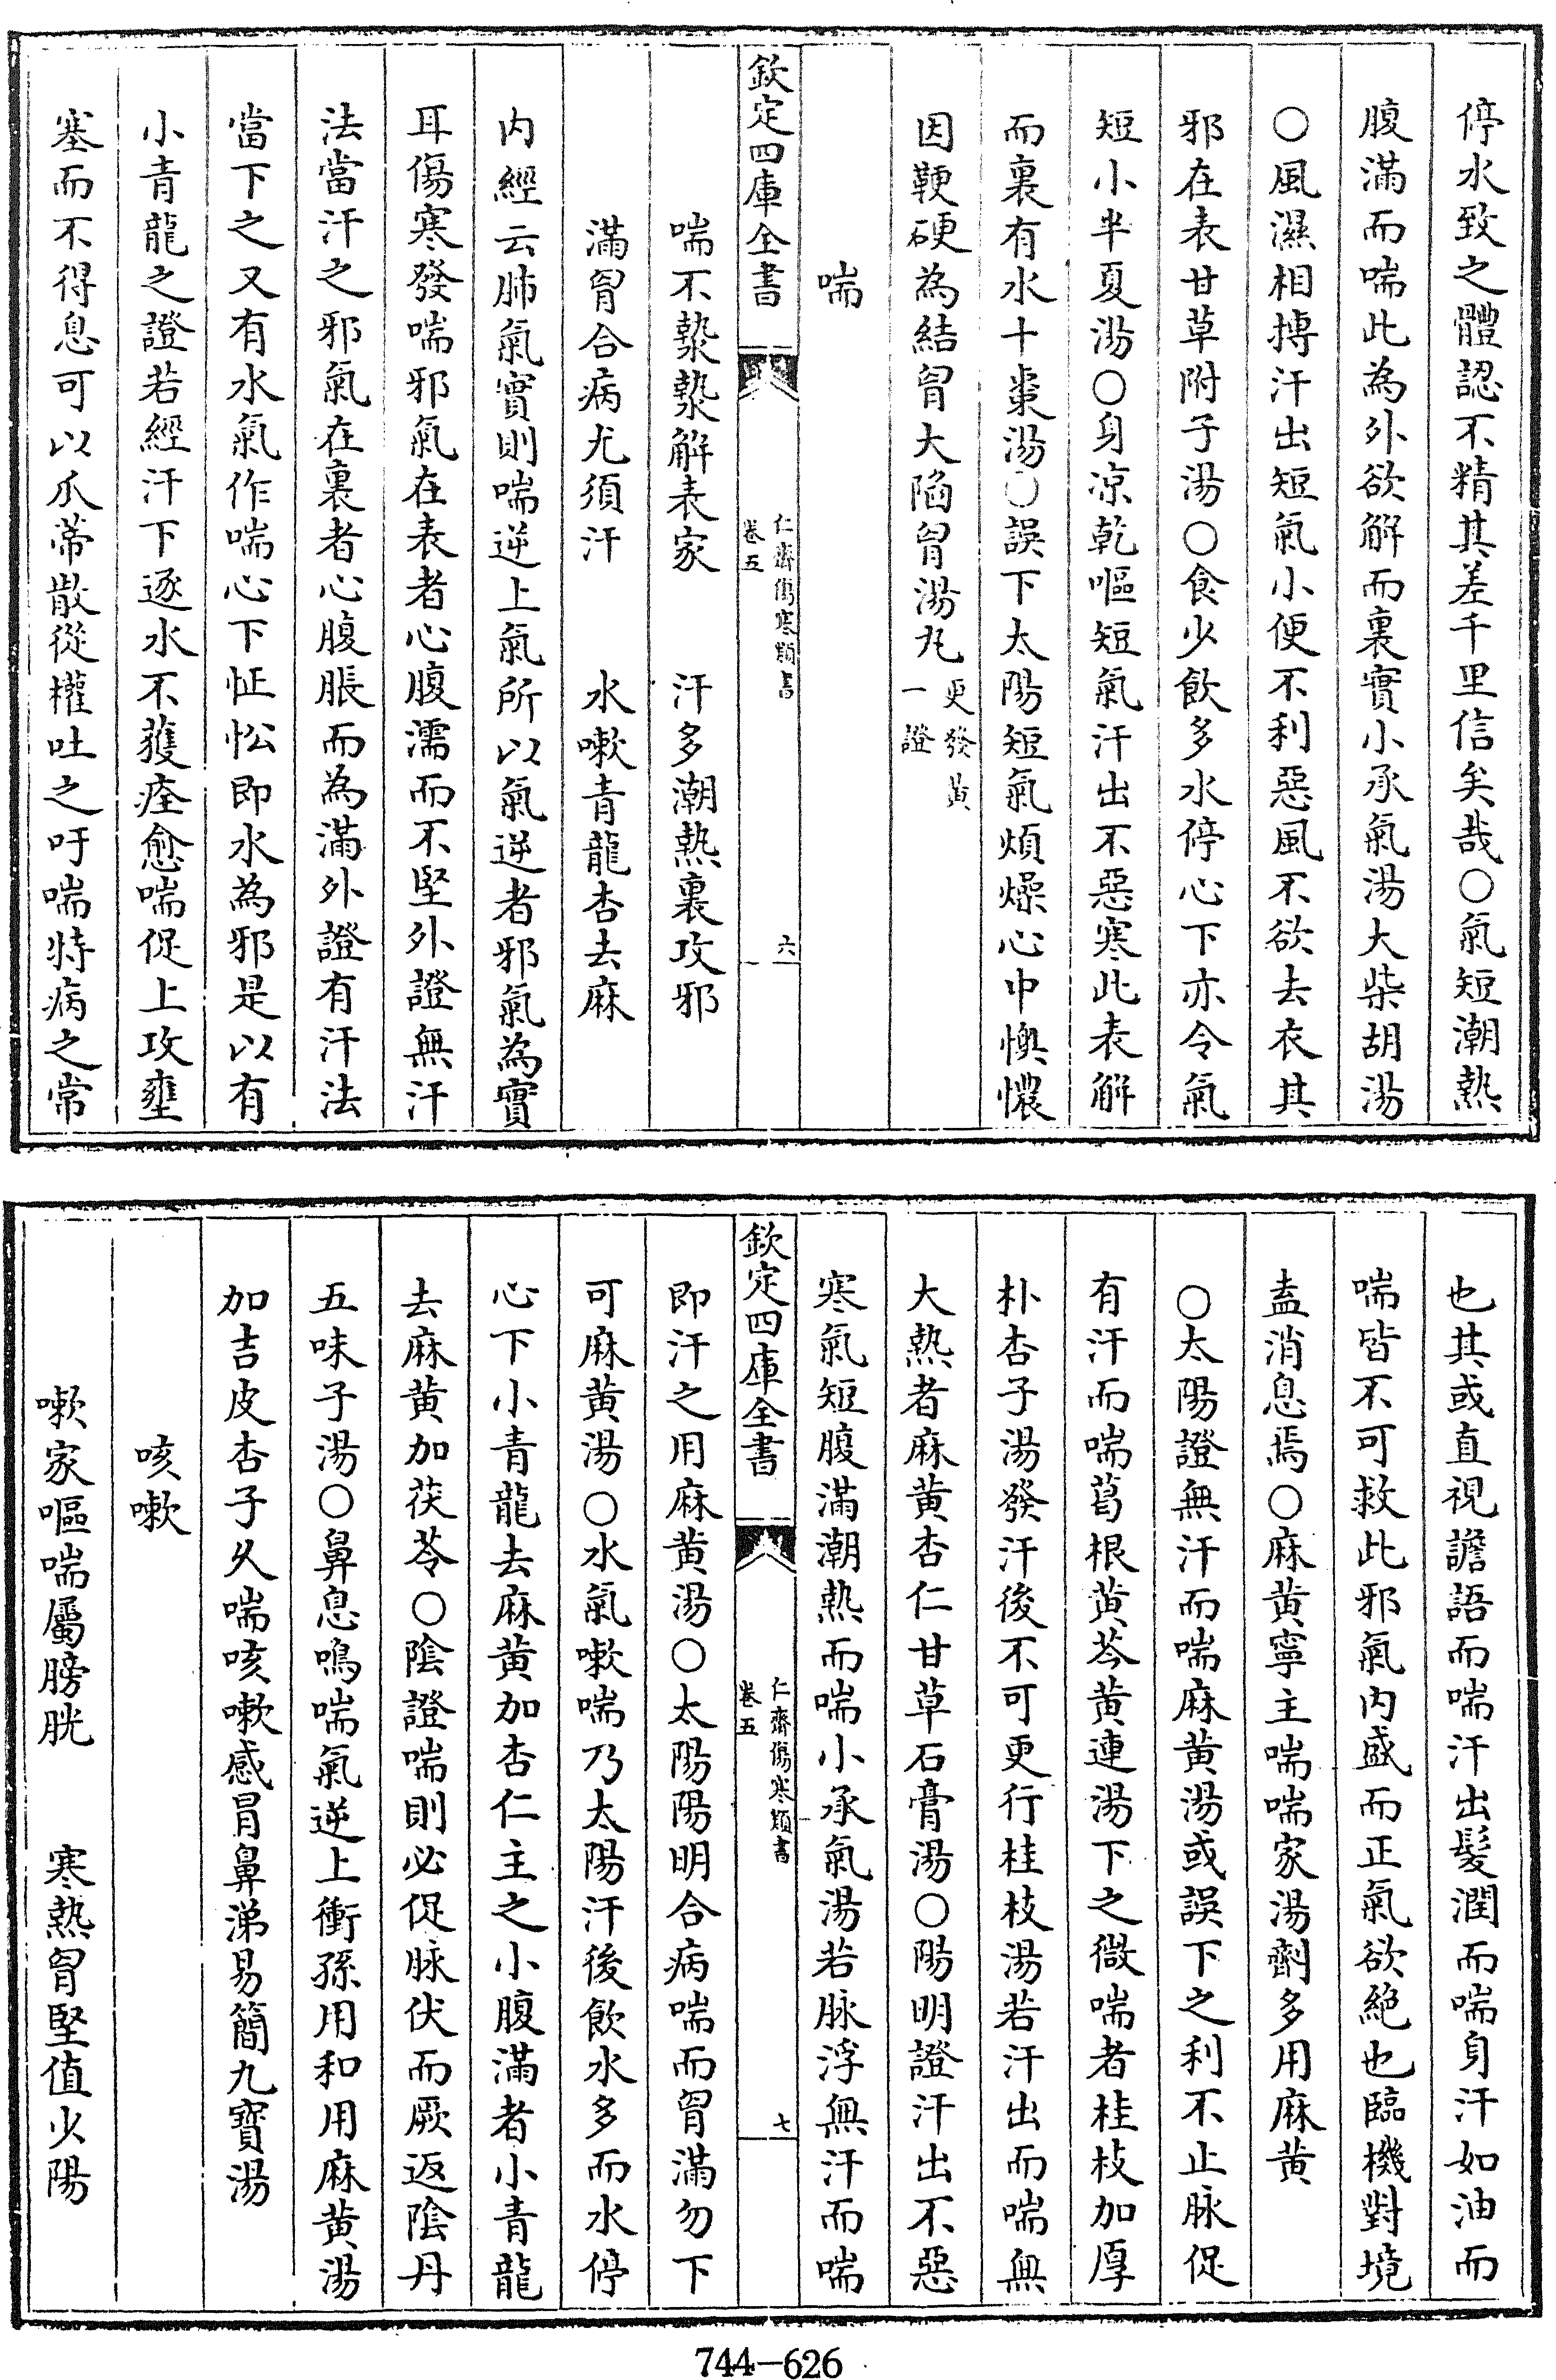 停水致之體認不精其差千里信矣哉○氣短潮熱
腹滿而喘此為外欲解而裏實小承氣湯大柴胡湯
○風濕相搏汗出短氣小便不利惡風不欲去衣其
邪在表甘草附子湯○食少飲多水停心下亦令氣
短小半夏湯○身涼乾嘔短氣汗出不惡寒此表解
而裏有水十棗湯○誤下太陽短氣煩燥心中懊憹
因鞕硬為結胷大陷胷湯丸更發黃一證
喘
欽定四庫全書
仁齋傷寒類書
卷五
六
喘不漐漐解表家　汗多潮熱裏攻邪
滿胷合病尤須汗　水嗽青龍杏去麻
内經云肺氣實則喘逆上氣所以氣逆者邪氣為實
耳傷寒發喘邪氣在表者心腹濡而不堅外證無汗
法當汗之邪氣在裏者心腹脹而為滿外證有汗法
當下之又有水氣作喘心下怔忪即水為邪是以有
小青龍之證若經汗下逐水不獲痊愈喘促上攻壅
塞而不得息可以瓜蒂散從權吐之吁喘特病之常
也其或直視譫語而喘汗出髮潤而喘身汗如油而
喘皆不可救此邪氣内盛而正氣欲絶也臨機對境
盍消息焉○麻黄寧主喘喘家湯劑多用麻黄
○太陽證無汗而喘麻黄湯或誤下之利不止脉促
有汗而喘葛根黄芩黄連湯下之微喘者桂枝加厚
朴杏子湯發汗後不可更行桂枝湯若汗出而喘無
大熱者麻黄杏仁甘草石膏湯○陽明證汗出不惡
寒氣短腹滿潮熱而喘小承氣湯若脉浮無汗而喘
欽定四庫全書
仁齋傷寒類書
卷五
七
即汗之用麻黄湯○太陽陽明合病喘而胷滿勿下
可麻黄湯○水氣嗽喘乃太陽汗後飲水多而水停
心下小青龍去麻黄加杏仁主之小腹滿者小青龍
去麻黄加茯苓○陰證喘則必促脉伏而厥返陰丹
五味子湯○鼻息鳴喘氣逆上衝孫用和用麻黄湯
加吉皮杏子久喘咳嗽感冒鼻涕易簡九寶湯
咳嗽
嗽家嘔喘屬膀胱　寒熱胷堅值少陽
744-626